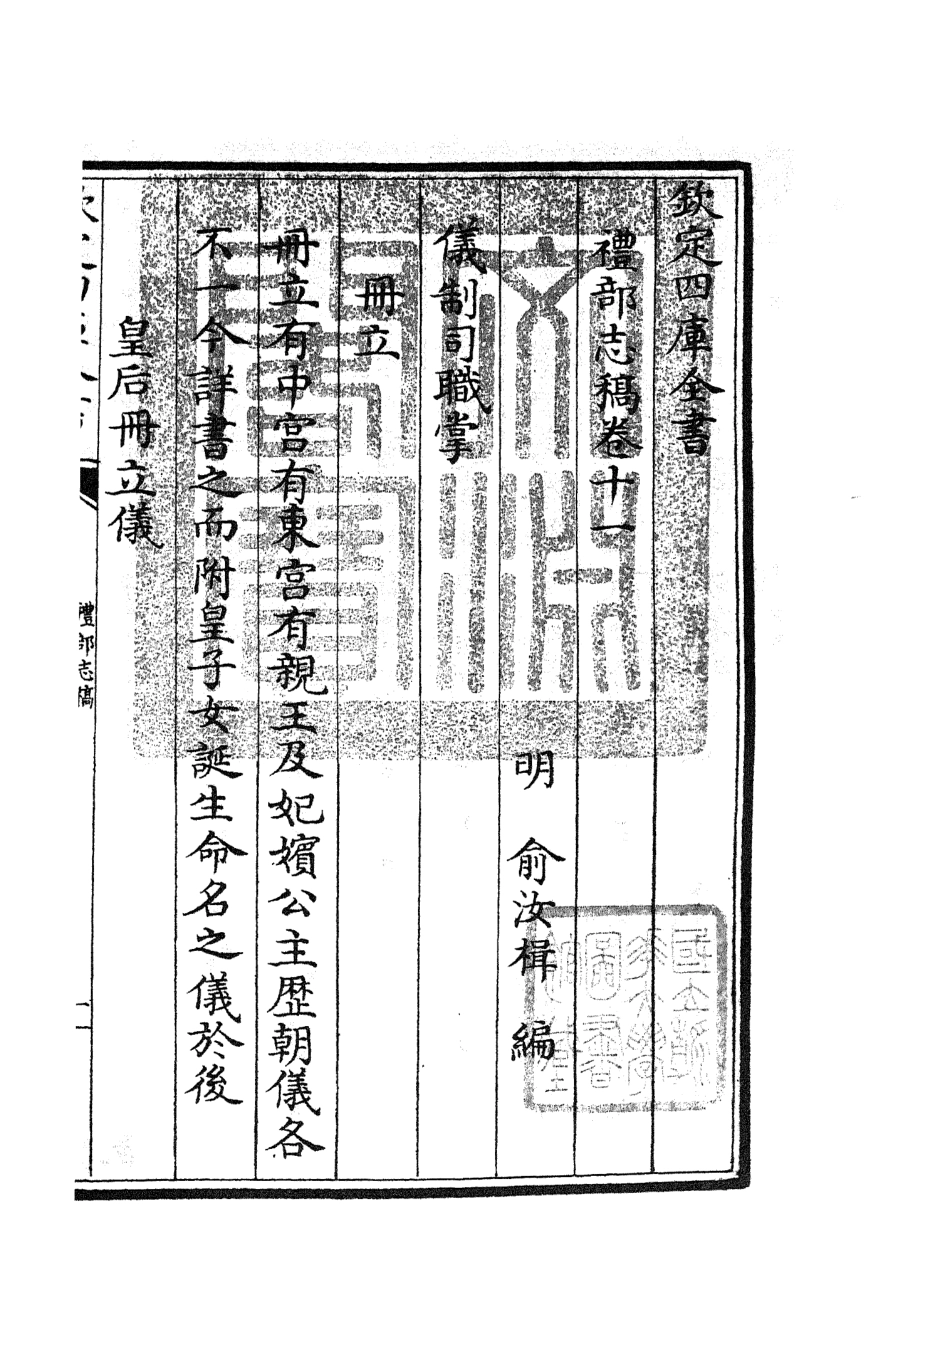 欽定四庫全書
禮部志稿卷十一
明 俞汝楫 編
儀制司職掌
冊立
冊立有中宫有東宫有親王及妃嬪公主歴朝儀各
不一今詳書之而附皇子女誕生命名之儀於後
皇后冊立儀
禮部志稿
一
文淵閣寶